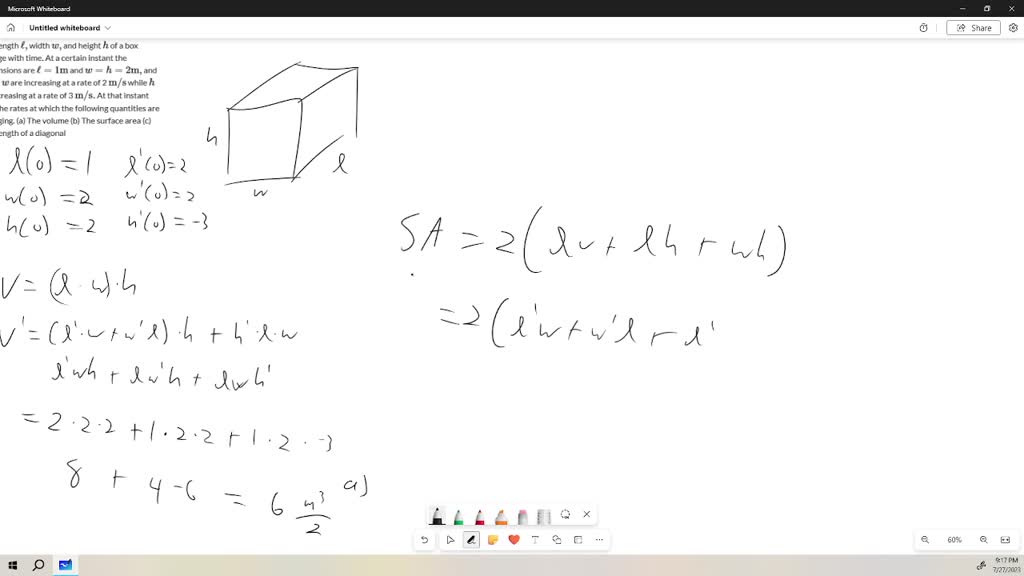 Microsoft Whiteboard
Untitled whiteboard
Share
ength ℓ, width w, and height h of a box
ge with time. At a certain instant the
nsions are ℓ = 1m and w = h = 2m, and
w are increasing at a rate of 2 m/s while h
creasing at a rate of 3 m/s. At that instant
he rates at which the following quantities are
ging. (a) The volume (b) The surface area (c)
ength of a diagonal
h
w
l
l(0) = 1 l'(0)=2
w(0) = 2 w'(0)=2
h(0) = 2 h'(0) = -3
V = (l · w) · h
V' = (l'·w + w'l) · h + h'·l·w
l'wh + lw'h + lwh'
= 2·2·2 + 1·2·2 + 1·2·-3
8 + 4 -6 = 6 m³/2 a)
SA = 2(lw + lh + wh)
= 2(l'w + w'l + l'
60%
9:17 PM
7/27/2023